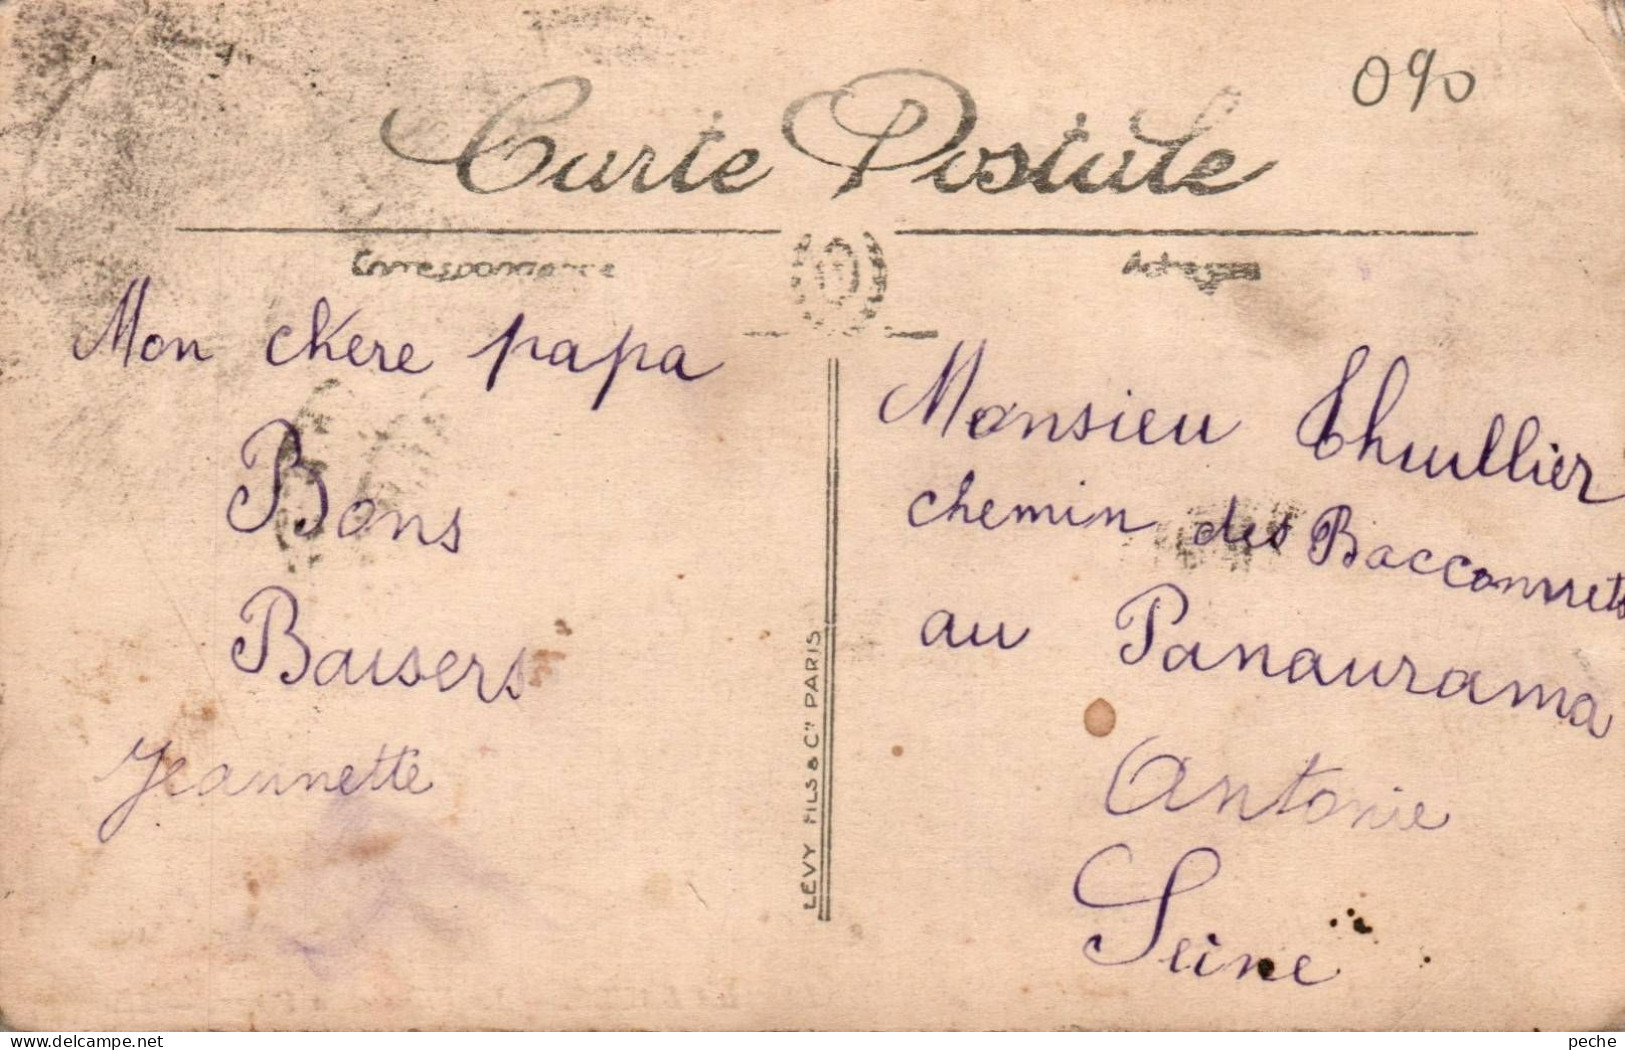 090
Carte Postale
Correspondance
Adresse
Mon chere papa
Bons
Baisers
Jeannette
LÉVY FILS & Cie PARIS
Monsieur Thuillier
chemin des Bacconnets
au Panaurama
Antonie
Seine
peche